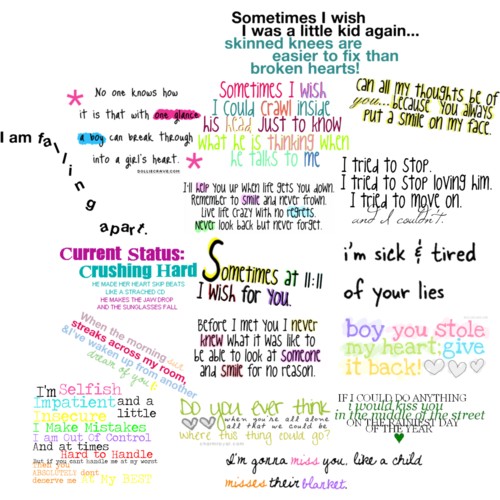 Sometimes I wish
I was a little kid again...
skinned knees are
easier to fix than
broken hearts!
* No one knows how
it is that with one glance
a boy can break through
into a girl's heart. *
DOLLIECRAVE.COM
Sometimes I wish
I could crawl inside
his head Just to know
what he is thinking when
he talks to me
can all my thoughts be of
you... because you always
put a smile on my face.
I am falling
apart.
I'll help you up when life gets you down.
Remember to smile and never frown.
Live life crazy with no regrets.
Never look back but never forget.
I tried to stop.
I tried to stop loving him.
I tried to move on.
and I couldn't.
Current Status:
Crushing Hard
HE MADE HER HEART SKIP BEATS
LIKE A STRACHED CD
HE MAKES THE JAW DROP
AND THE SUNGLASSES FALL
Sometimes at 11:11
I wish for you.
i'm sick & tired
of your lies
When the morning sun
streaks across my room,
&I've waken up from another
dream of you
Before I met you I never
knew what it was like to
be able to look at someone
and smile for no reason.
boy you stole
my heart:give
it back!♡♡♡
I'm Selfish
Impatient and a
Insecure little
I Make Mistakes
I am Out Of Control
And at times
Hard to Handle
But if you cant handle me at my worst
Then you
ABSOLUTELY dont
deserve me at My BEST
Do you ever think,
♡♡ when you're all alone ♡♡
all that we could be
where this thing could go?
IF I COULD DO ANYTHING
i would kiss you
in the middle of the street
ON THE RAINIEST DAY
OF THE YEAR
♥
I'm gonna miss you, like a child
misses their blanket.